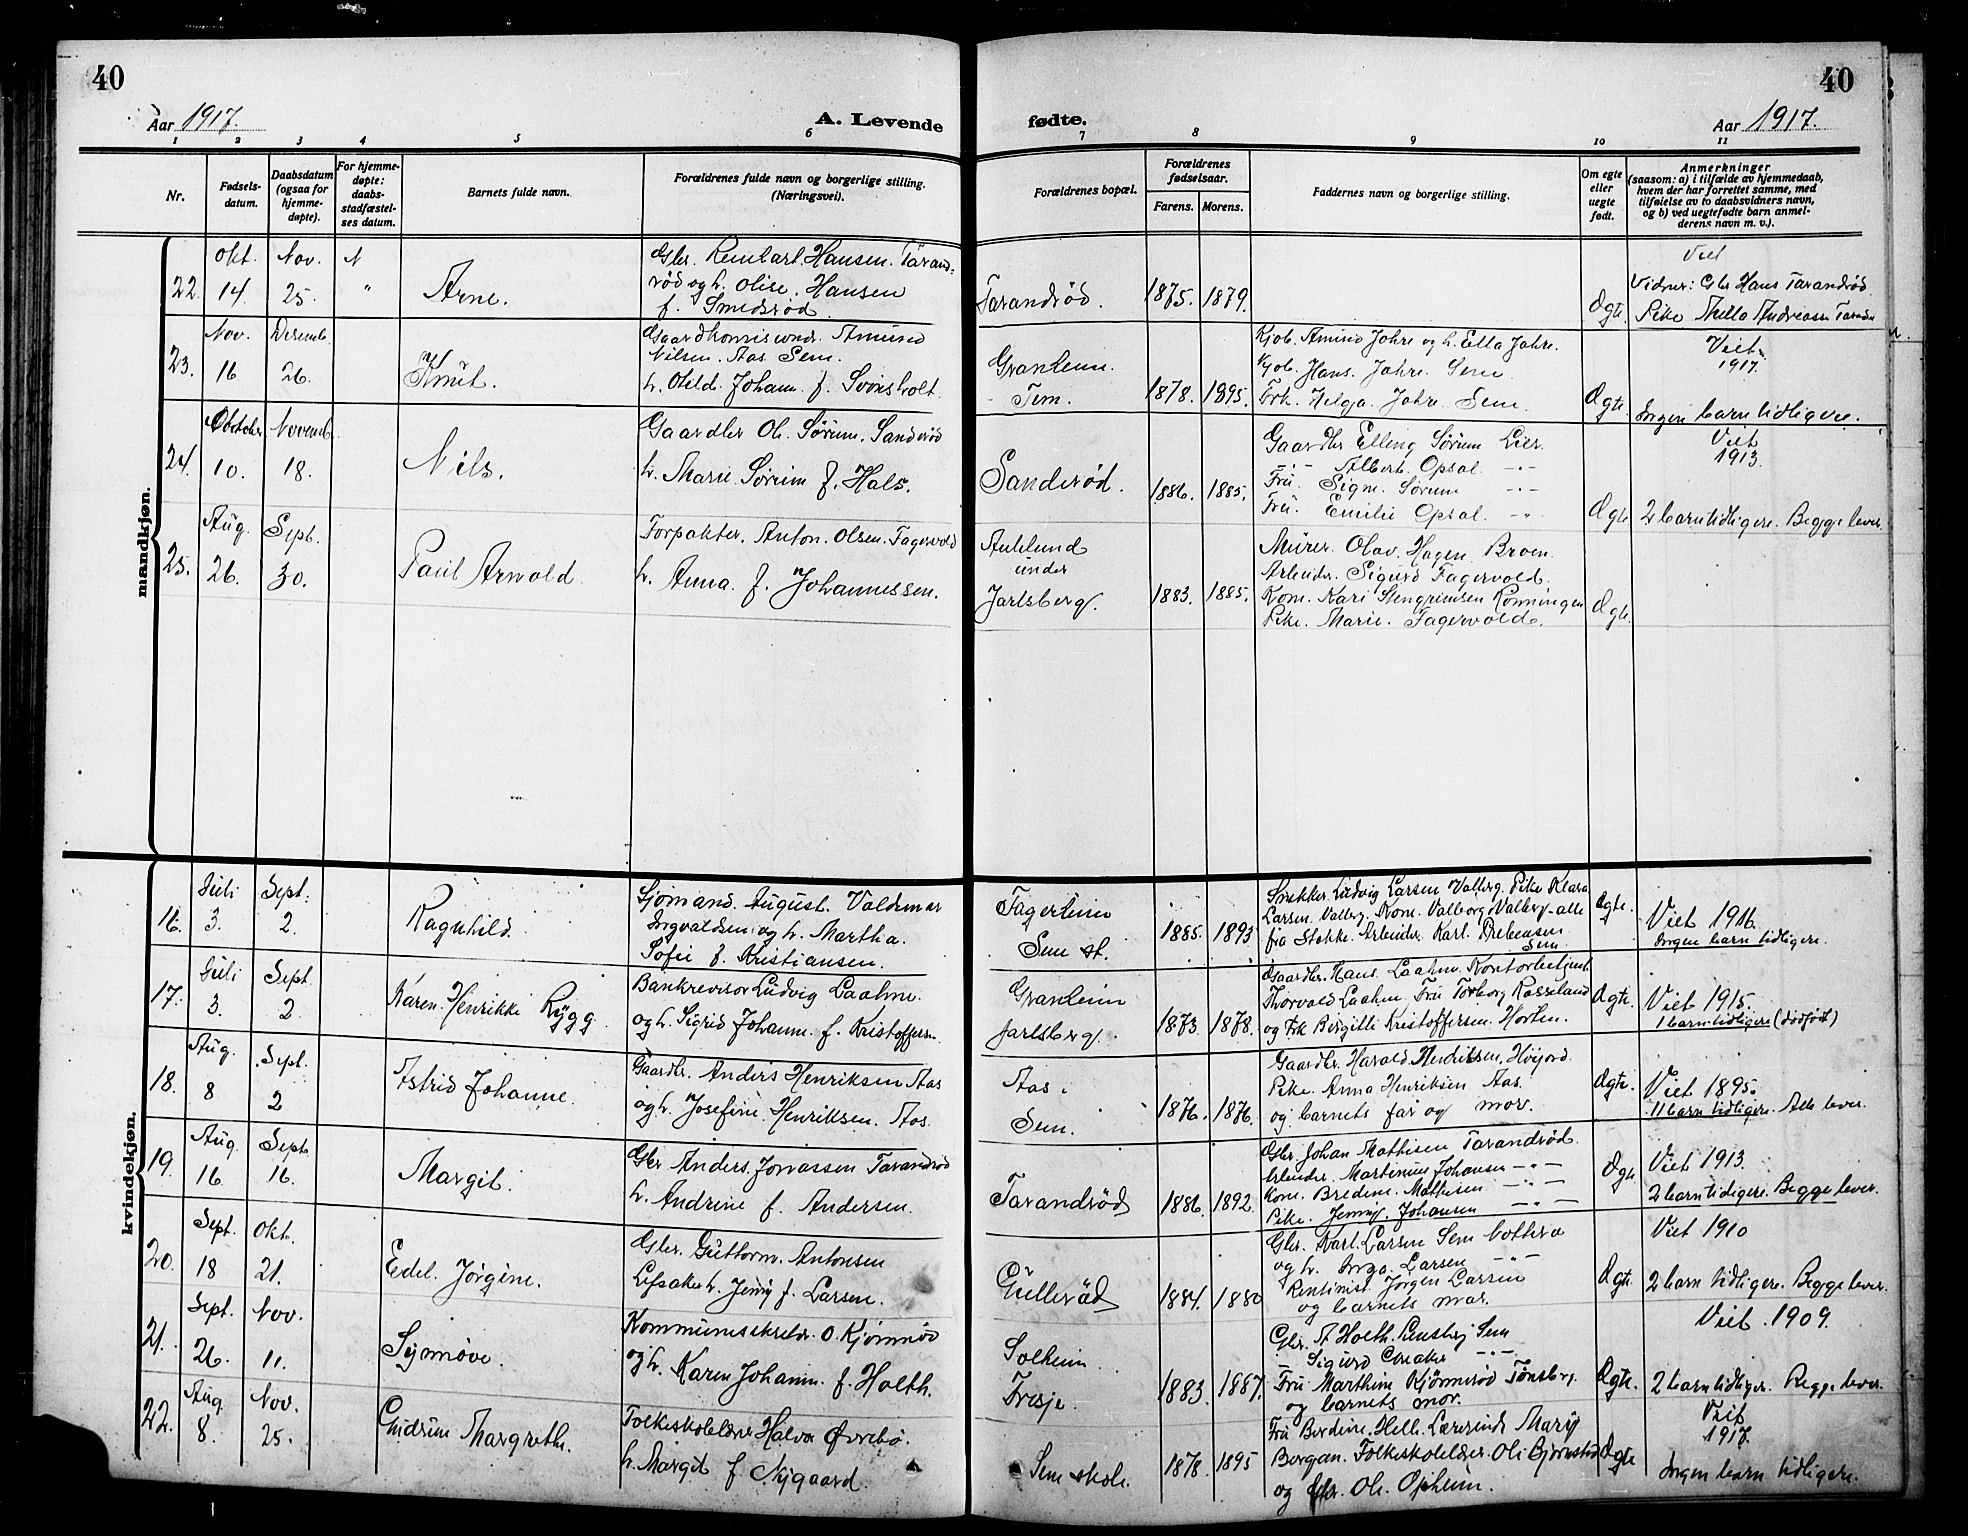 40
40
Aar 1917.
A. Levende
fødte.
Aar 1917.
1 2 3 4 5 6 7 8 9 10 11
Nr.
Fødsels-
datum.
Daabsdatum
(ogsaa for
hjemme-
døpte).
For hjemme-
døpte:
daabs-
stadfæstel-
ses datum.
Barnets fulde navn.
Forældrenes fulde navn og borgerlige stilling.
(Næringsvei).
Forældrenes bopæl.
Forældrenes
fødselsaar.
Farens. Morens.
Faddernes navn og borgerlige stilling.
Om egte
eller
uegte
født.
Anmerkninger
(saasom: a) i tilfælde av hjemmedaab,
hvem der har forrettet samme, med
tilføielse av to daabsvidners navn,
og b) ved uegtefødte barn anmel-
derens navn m. v.).
mandkjøn.
22. Okt. 14. Nov. 25. N "
Arne.
Gbr. Reinhart Hansen. Tarand-
rød og h. Olise. Hansen
f. Smedsrød.
Tarandrød.
1875. 1879.
Ægte.
Viet
Vidner: Gbr Hans Tarandrød
Pike Mella Andreasen
23. Nov. 16 Desemb. 26.
Knut.
Amund
Nilsen. Aas Sem.
h. Johanne f.
Granheim.
Sem.
1878. 1895.
Kjøb. Amund Jahre og h. Ella Jahre.
Kjøb. Hans. Jahre Sem
Frk. Helga. Jahre Sem.
Ægte.
Viet
1917.
Ingen barn tidligere.
24. Oktober 10. Novemb. 18.
Nils.
Gaardbr Ole. Sørum. Sanderød
h. Marie Sørum f. Hals.
Sanderød.
1886. 1885.
Gaardbr Elling Sørum Lier.
-"- Albert. Opsal -"-
Fru. Signe. Sørum -"-
Fru. Emilie Opsal. -"-
Ægte
Viet
1913.
2 barn tidligere. Begge lever.
25. Aug. 26. Sept. 30.
Paul Arnold.
Forpakter. Anton. Olsen. Fagervold
h. Anna. f. Johannessen.
Auklund
under
Jarlsberg.
1883. 1885.
Murer. Olav. Hagen. Broen.
Arbeider. Sigurd Fagervold.
Kone. Kari Stengrimsen Rønningen
Pike. Marie. Fagervold.
Ægte.
kvindekjøn.
16. Juli 3. Sept. 2.
Ragnhild.
Sjømand. August. Valdemar
Ingvaldsen og h. Martha.
Sofie f. Kristiansen.
Fagerheim
Sem st.
1885. 1893
Snekker Ludvig Larsen Valberg. Pike Klara
Larsen. Valberg. Kone. Valborg Valberg - alle
fra Stokke. Arbeider. Karl.
Sem
Ægte.
Viet 1916.
Ingen barn tidligere.
17. Juli 3. Sept 2.
Karen. Henrikke Rygg
Bankrevisor Ludvig Laahne.
og h. Sigrid Johanne f. Kristoffersen.
Granheim
Jarlsberg.
1873. 1878.
Gaardbr. Hans. Laahne. Kontorbetjent
Thorvald Laahne. Fru Torborg Rosseland
og Frk Bergitte Kristoffersen. Horten.
Ægte
Viet 1915.
1 barn tidligere (dødfødt)
18. Aug. 8 Sept. 2
Astrid Johanne.
Gaardbr. Anders Henriksen Aas
og h. Josefine. Henriksen. Aas.
Aas.
Sem.
1876. 1876.
Gaardbr. Harald Henriksen. Høijord.
Pike. Anna Henriksen Aas.
og barnets far og mor.
Ægte.
Viet 1895.
11 barn tidligere. Alle lever.
19. Aug 16. Sept 16.
Margit.
Gbr Anders. Jonassen Tarandrød
h. Andrine f. Andersen.
Tarandrød
1886. 1892.
Gbr. Johan Mathisen Tarandrød.
Arbeider. Martinius Johansen -"-
Kone. Bredine. Mathisen -"-
Pike. Jenny. Johansen -"-
Ægte
Viet 1913.
2 barn tidligere. Begge lever.
20. Sept. 18 Okt. 21.
Edel. Jørgine.
Gbr. Guttorm. Antonsen
h. Jenny f. Larsen.
Gullerød
1884. 1880
Gbr. Karl. Larsen Sem
og h. Inga. Larsen -"-
Rentinist. Jørgen Larsen
og barnets mor.
Ægte.
Viet 1910
2 barn tidligere. Begge lever.
21. Sept. 26. Nov. 11.
Synnøve.
Kommunesekretær. O. Kjønnø
og h. Karen Johanne. f. Holth.
Solheim
Tresje.
1883. 1887.
Gbr. A Holth. Sem
Sigurd -"-
Fru Marthine Tønsberg.
og barnets mor.
Ægte.
Viet. 1909.
2 barn tidligere. Begge lever.
22. Aug 8. Nov. 25.
Gudrun Margrethe.
Folkeskolelærer Halvor Øvrebø.
h. Margit f Nygaard.
Sem skole.
1878. 1895
Fru Bordine. Helle. Lærerinde Mary
Bergan. Folkeskolelærer Ole Bjørnstad
og Gbr. Ole. Opheim.
Ægte
Viet
1917.
Ingen barn tidligere.